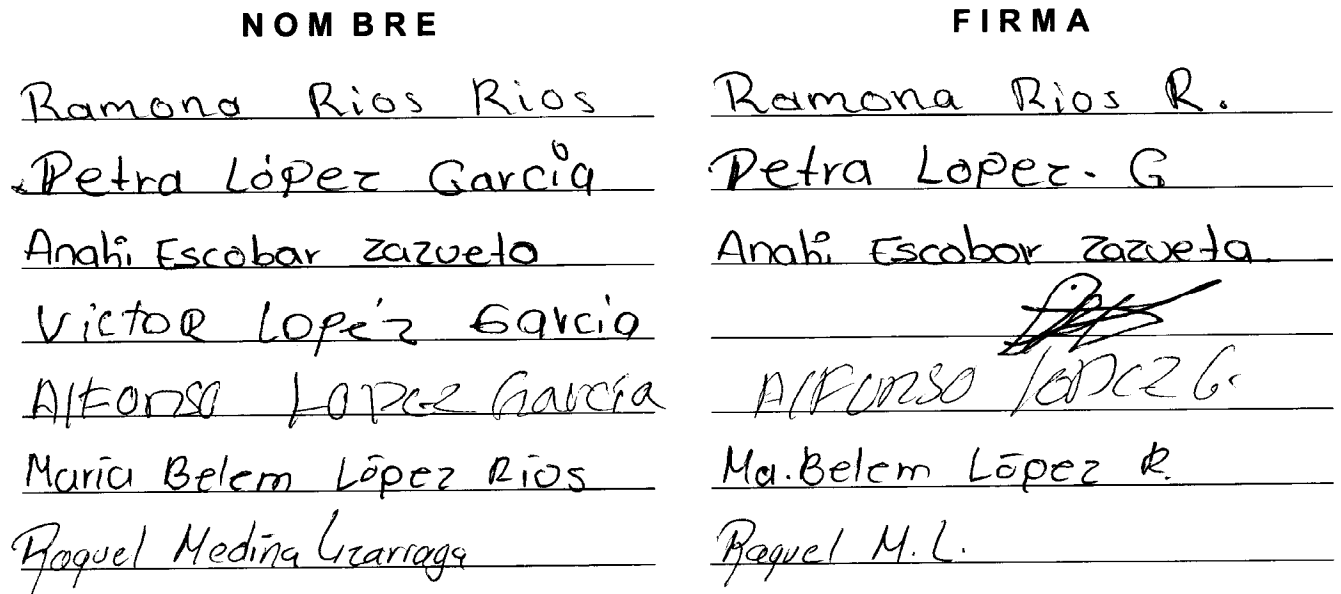 NOMBRE FIRMA
Ramona Rios Rios Ramona Rios R.
Petra López García Petra Lopez. G
Anahi Escobar Zazueta Anahi Escobar Zazueta
Victor Lopéz Garcia
Alfonso Lopez García Alfonso Lopez G.
María Belem López Ríos Ma. Belem López R.
Raquel Medina Lizarraga Raquel M.L.